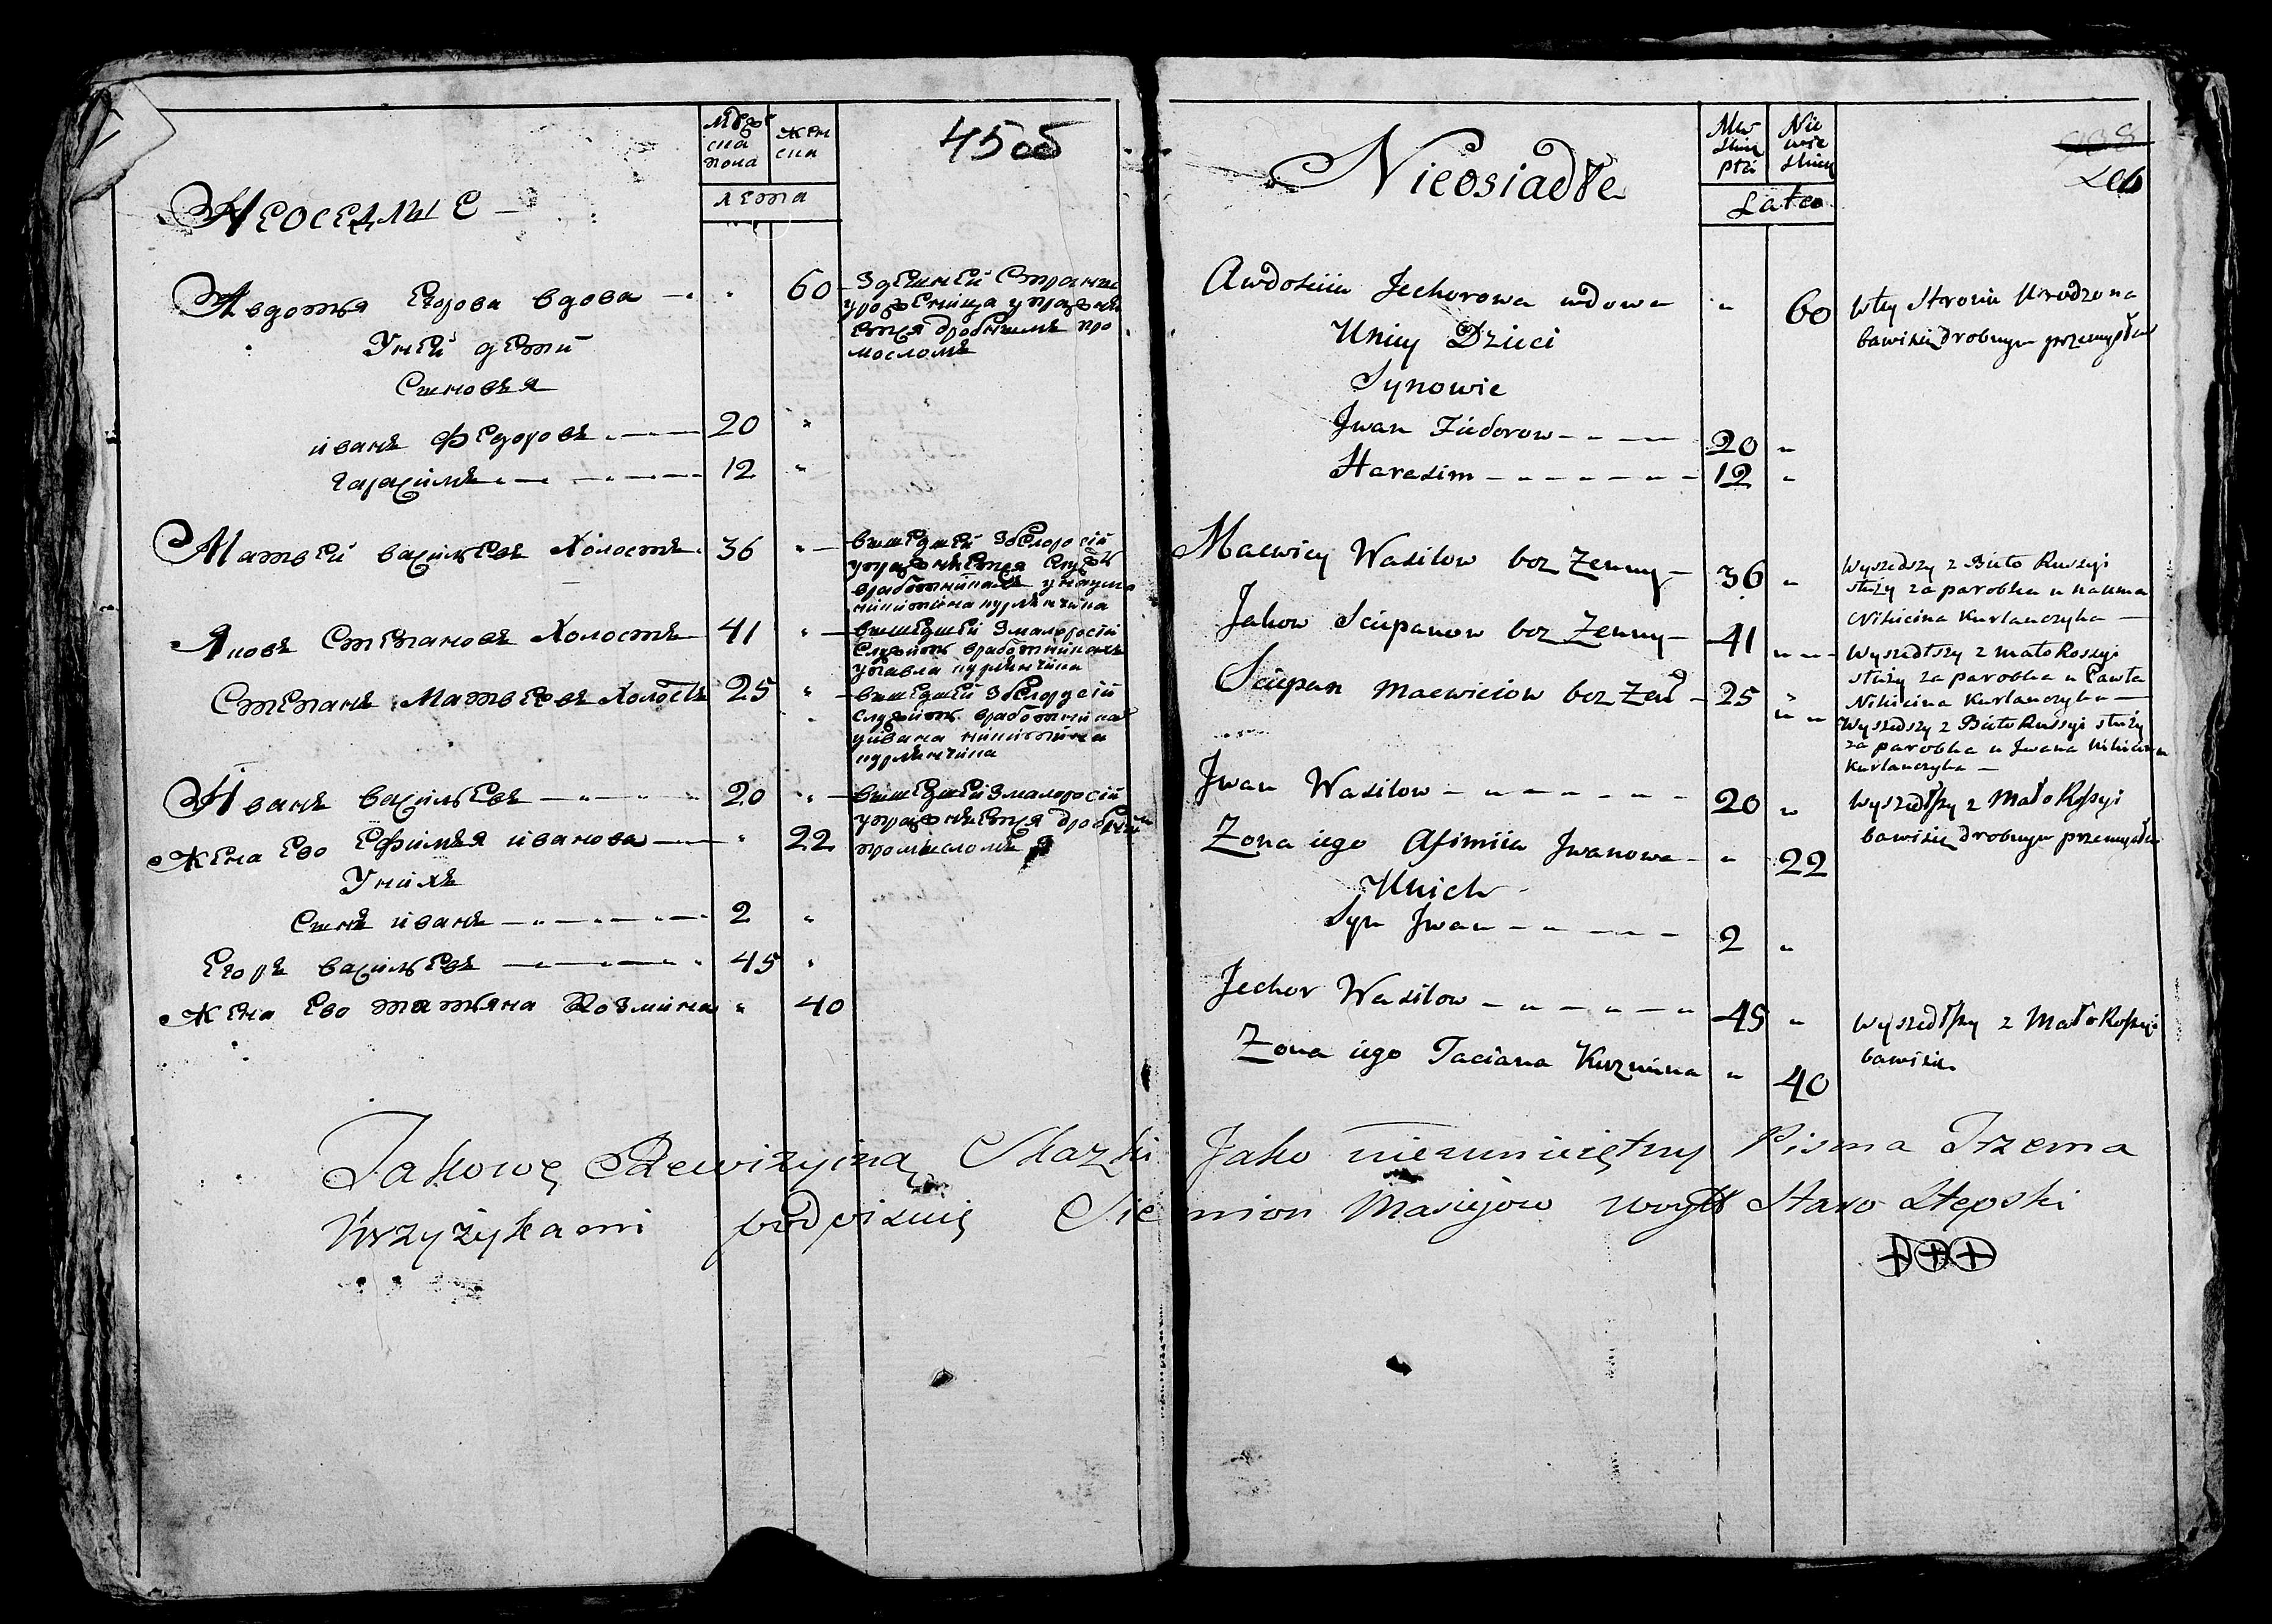 45 об
Муже
ска
пола
жен
ски
лета
Неоседлые
Авдотья Егорова вдова " 60
Здешней Страны
упражня
ется дробнымъ про
мысломъ
Уней дети
Сыновья
иванъ Федоровъ 20 "
Гарасимъ 12 "
Матвей васильевъ Холостъ 36 "
вышедшей Збелоросiи
упражняется
вработникахъ унаума
никитина курлянчика
Яковъ Степановъ Холостъ 41 "
вышедшей Змалоросiи
Служитъ вработникахъ
упавла курлянчика
Степанъ Матвеевъ Холостъ 25 "
вышедшей Збелоросiи
служитъ вработникахъ
уивана никитина
курлянчика
Иванъ васильевъ 20 "
вышедшей Змалоросiи
упражняется дробнымъ
промысломъ
Жена Ево Ефимья иванова " 22
Унихъ
Сынъ иванъ 2 "
Егоръ васильевъ 45 "
Жена Ево татьяна Козмина " 40
Nieosiadłe
Lata
Awdotiia Jechorowa wdowa " 60
wtey Stronie Urodzona
bawisie drobnym przemysłem
Uniey Dzieci
Synowie
Jwan Fiedorow 20 "
Harasim 12 "
Macwiey Wasilow bez Zenny 36 "
Wyszedszy z Biało Russyi
służy za parobka u nauma
Nikicina Kurlanczyka
Jakow Sciepanow bez Zenny 41 "
Wyszedłszy z mało Rossyi
służy za parobka u Pawła
Nikicina Kurlanczyka
Sciepan Macwieiow bez Zen 25 "
Wyszedszy z Biało Russyi służy
za parobka u Jwana Nikicina
Kurlanczyka
Jwan Wasilow 20 "
Wyszedłszy z Mało Rossyi
bawisie drobnym przemysłem
Zona iego Afimiia Jwanowa " 22
Unich
Syn Jwan 2 "
Jechor Wasilow 45 "
Wyszedłszy z Mało Rossyi
bawisie
Zona iego Taciana Kuzmina " 40
Takowę Rewizyiną Skazki Jako nieumieiętny Pisma Trzema
Krzyżykami podpisuię Siemion Masiejow woyt Staro Stepski
+++